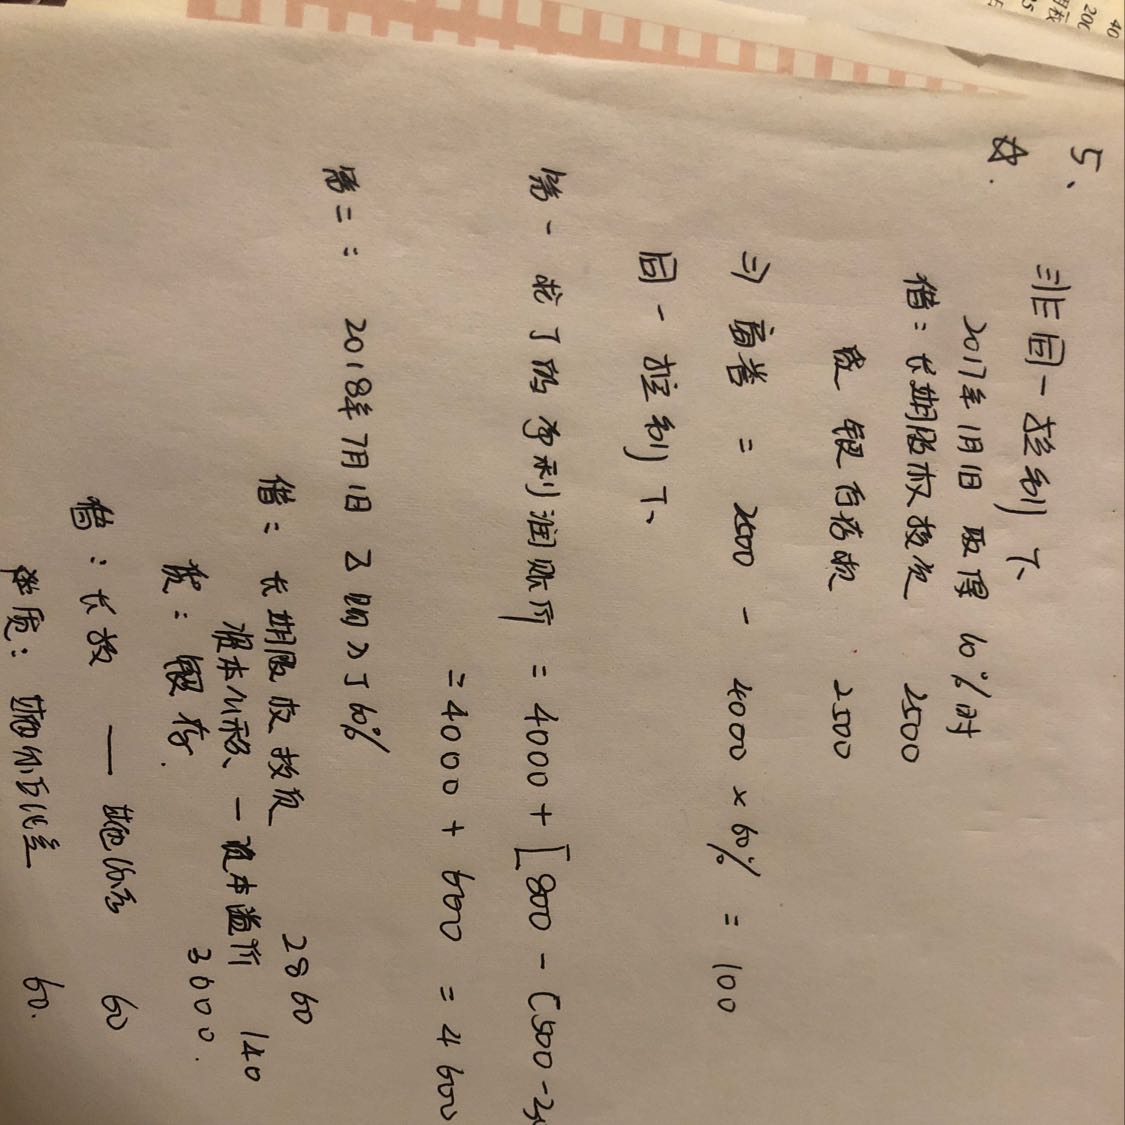 5、
☆.
非同一控制下、
2017年1月1日 取得 60%时
借：长期股权投资 2500
贷 银行存款 2500
⇒ 商誉 = 2500 - 4000 × 60% = 100
同一控制下、
第一 求丁的净利润账价 = 4000 + [800 - (500-
= 4000 + 600 = 4600
第二： 2018年7月1日 乙购入丁60%
借： 长期股权投资 2860
资本公积 — 资本溢价 140
贷： 银存. 3000.
借：长投 — 其他综合 60
贷： 60.
40
200